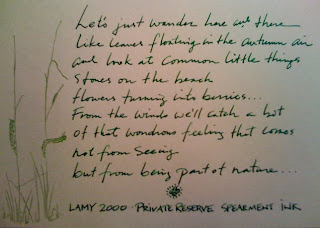 Let's just wander here and there
like leaves floating in the autumn air
and look at common little things
stones on the beach
flowers turning into berries...
From the winds we'll catch a hint
of that wondrous feeling that comes
not from seeing
but from being part of nature...
LAMY 2000 · PRIVATE RESERVE SPEARMINT INK